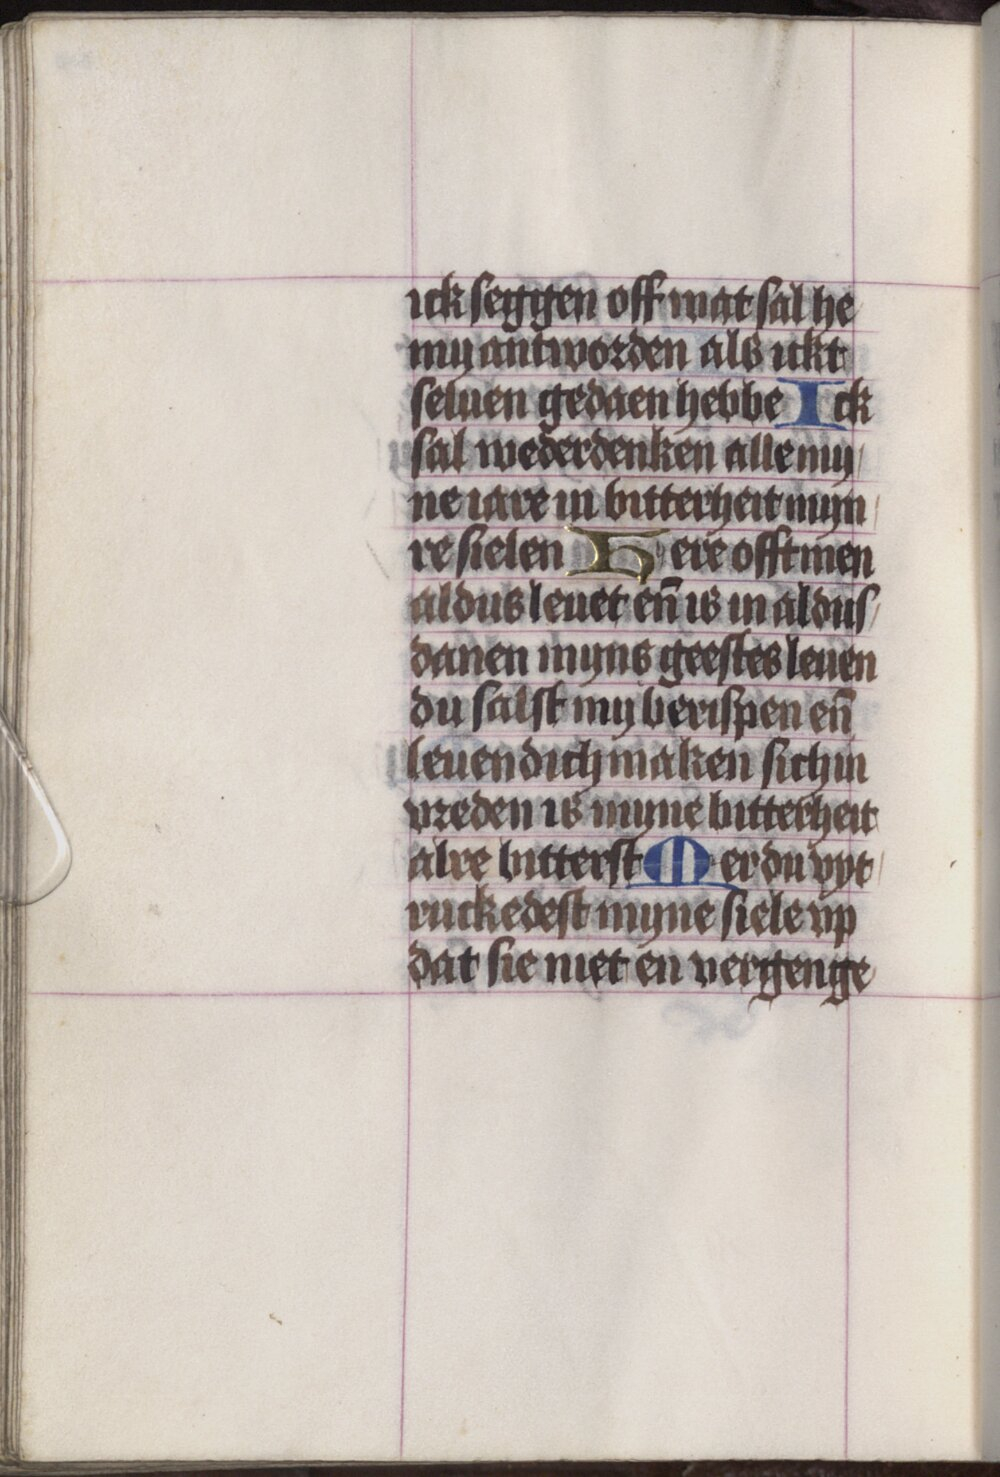 ick seggen off wat sal he
my antworden als ickt
seluen gedaen hebbe Ick
sal wederdenken alle my/
ne iare in bitterheit myn/
re sielen Here offt men
aldus leuet en̄ is in aldus/
danen myns geestes leuen
du salst my berispen en̄
leuendich maken sich in
vreden is myne bitterheit
alre bitterst Mer du vyt/
ruckedest myne siele vp
dat sie niet en vergenge